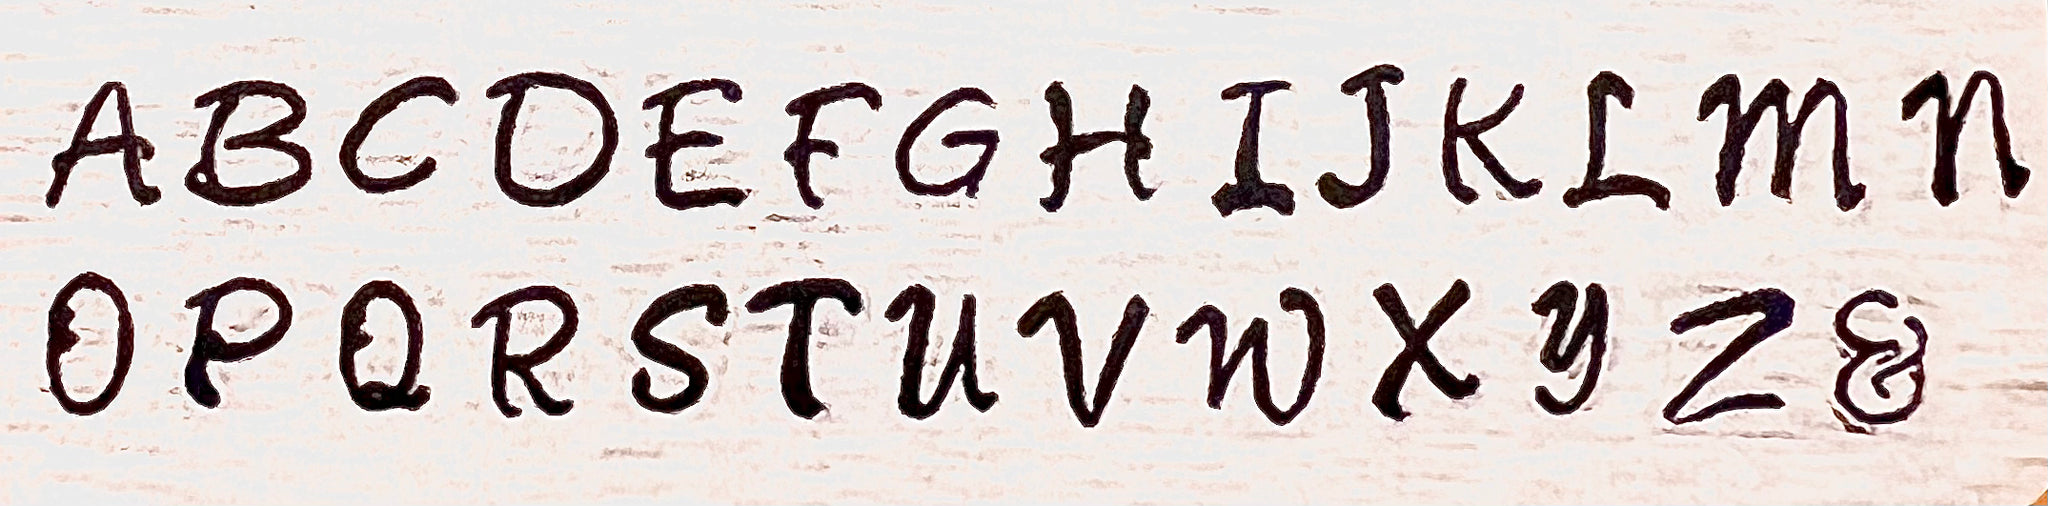 A B C D E F G H I J K L M N
O P Q R S T U V W X Y Z &